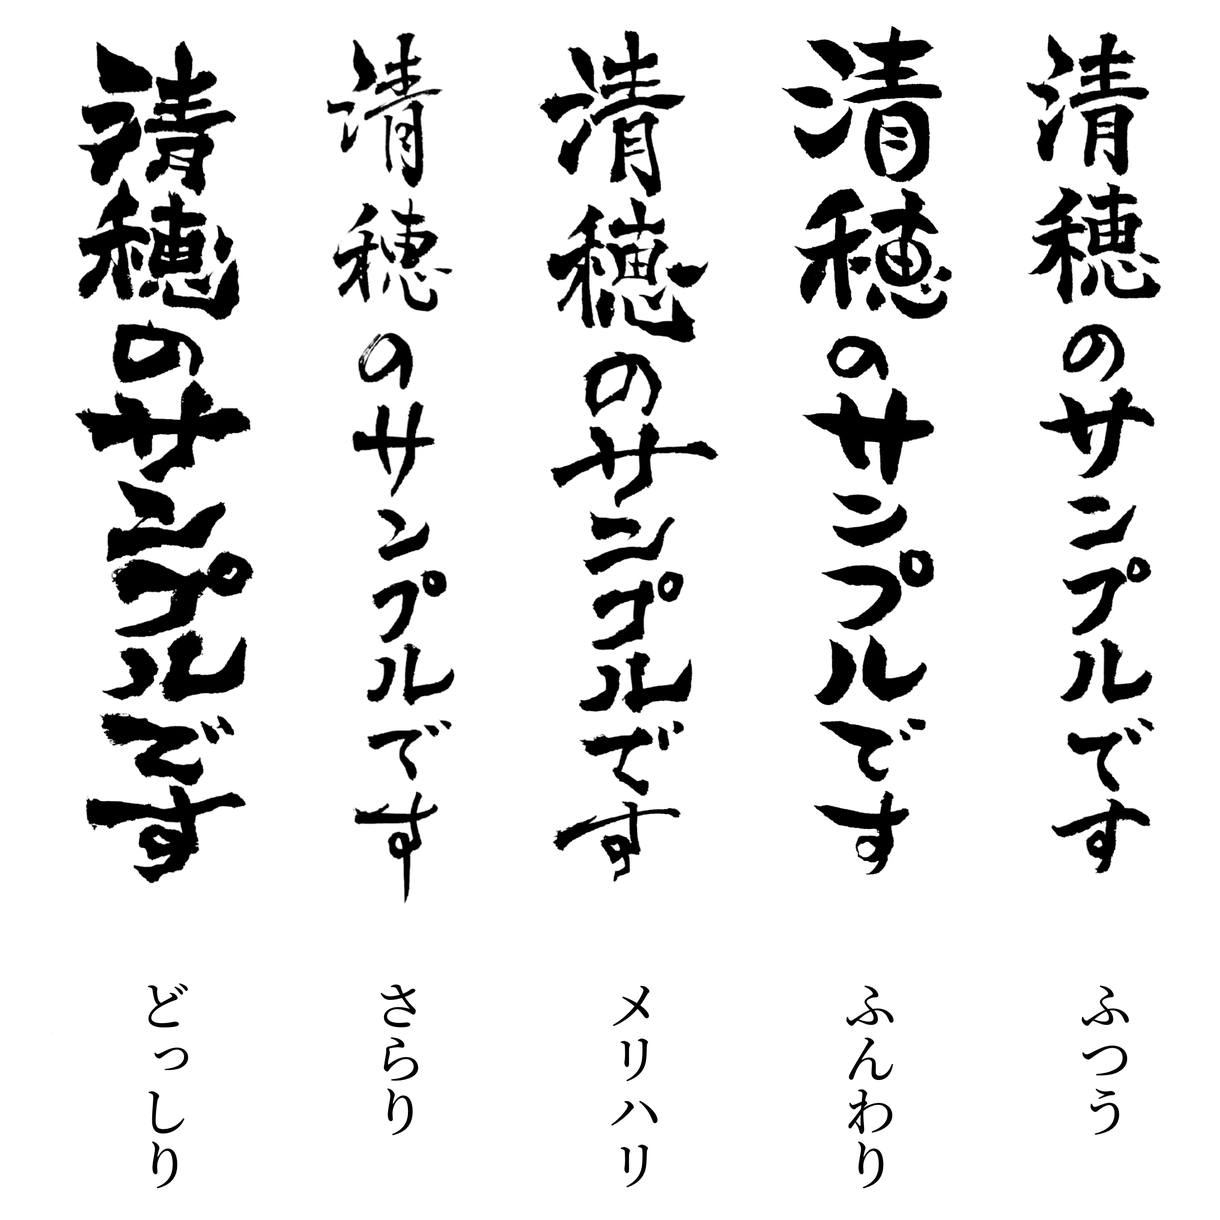 清穂のサンプルです
ふつう
清穂のサンプルです
ふんわり
清穂のサンプルです
メリハリ
清穂のサンプルです
さらり
清穂のサンプルです
どっしり